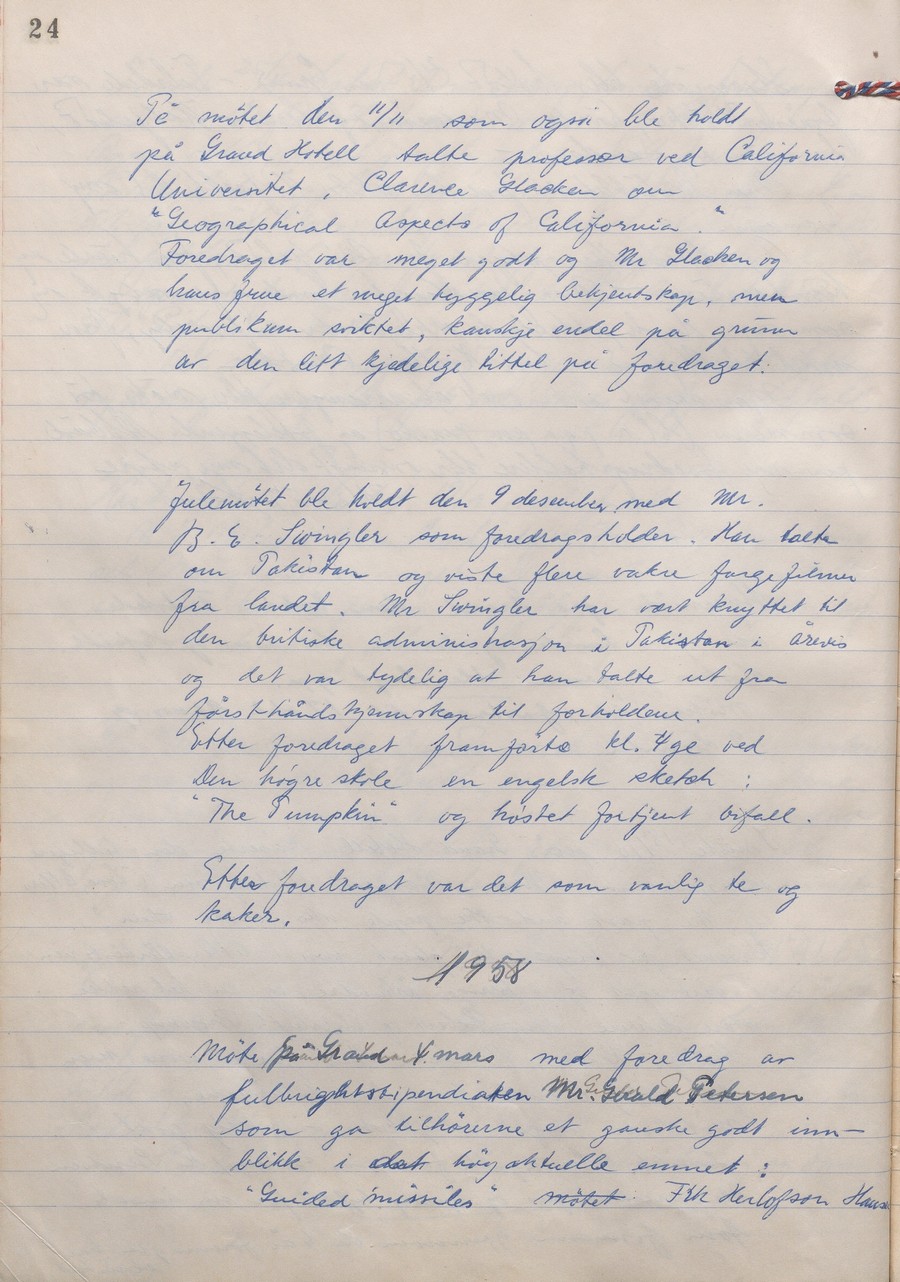 24
På møtet den 11/11 som også ble holdt
på Grand Hotell talte professor ved California
Universitet, Clarence Glacken om
"Geographical Aspects of California."
Foredraget var meget godt og Mr Glacken og
hans frue et meget hyggelig bekjentskap, men
publikum sviktet, kanskje endel på grunn
av den litt kjedelige tittel på foredraget.
Julemøtet ble holdt den 9 desember, med Mr.
B. E. Swingler som foredragsholder. Han talte
om Pakistan og viste flere vakre fargefilmer
fra landet. Mr Swingler har vært knyttet til
den britiske administrasjon i Pakistan i årevis
og det var tydelig at han talte ut fra
førsthåndskjennskap til forholdene.
Etter foredraget framførte kl. 4ge ved
Den høgre skole en engelsk sketch:
"The Pumpkin" og høstet fortjent bifall.
Etter foredraget var det som vanlig te og
kaker.
1958
Møte på Grand 4. mars med foredrag av
fulbrightstipendiaten Mr. Gerald Petersen
som ga tilhørerne et ganske godt inn-
blikk i det høgaktuelle emnet:
"Guided missiles" møtet. Frk Herlofson Hansen